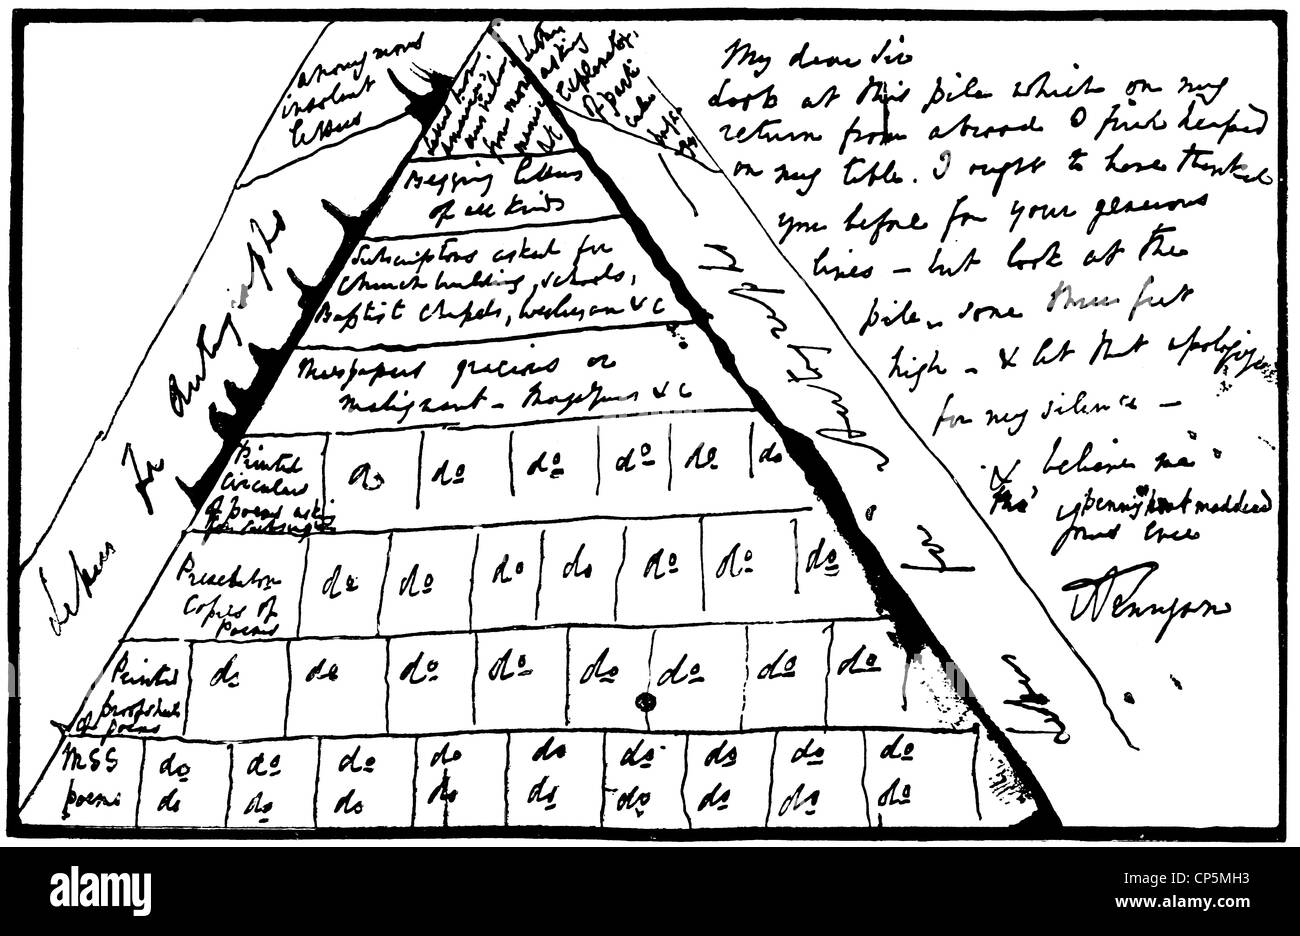 anonymous
insolent
letters
Letters
asking
explanations
of parti
cular
Letters for Autographs
Letters for Autographs
Begging letters
of all kinds
Subscriptions asked for
Church building, schools,
Baptist chapels, Wesleyan & c
Newspapers gracious or
malignant – Magazines & c
Printed
circulars
of poems asking
for subscription
do do do do do do
Presentation
Copies of
Poems
do do do do do do do
Printed
proofsheets
of poems
do do do do do do do do
MSS do do do do do do do do do
poems do do do do do do do do do
My dear Sir
Look at this pile which on my
return from abroad I find heaped
on my table. I ought to have thanked
you before for your generous
lines – but look at the
pile, some three feet
high – & let that apologize
for my silence –
& believe me
tho' penny post maddened
yours ever
A Tennyson
alamy
alamy
Image ID: CP5MH3
www.alamy.com